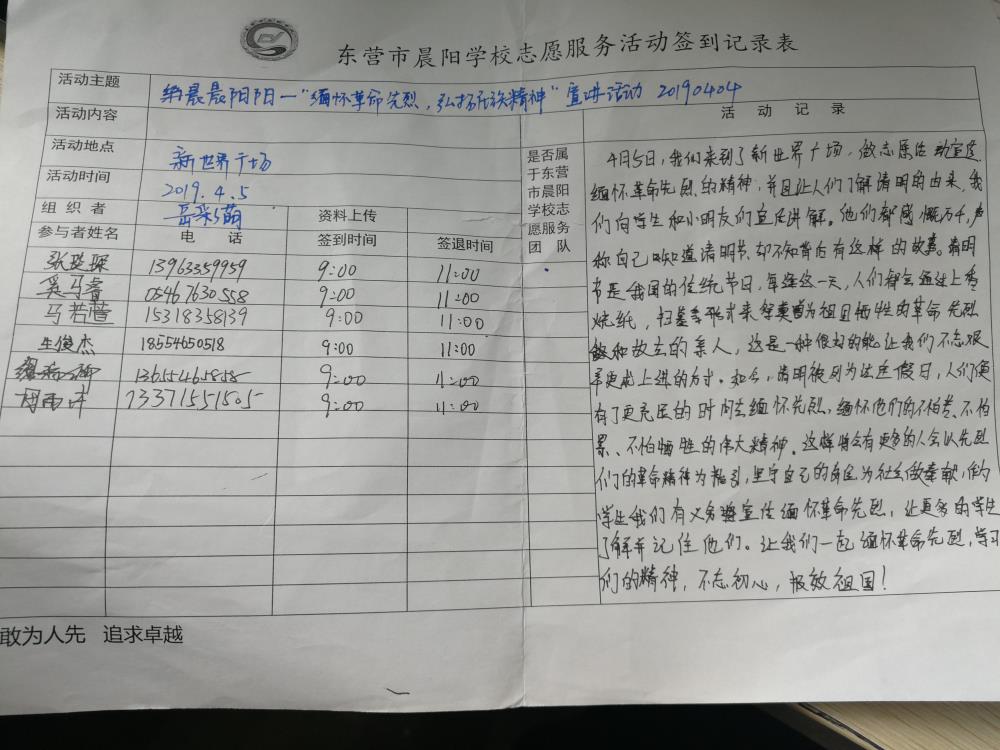 东营市晨阳学校志愿服务活动签到记录表
活动主题 晨晨阳阳一"缅怀革命先烈,弘扬民族精神"宣讲活动 20190404
活动内容
活动地点 新世界广场
活动时间 2019.4.5
组织者 岳彩萌
资料上传
是否属于东营市晨阳学校志愿服务团队
参与者姓名 电话 签到时间 签退时间
13963559959 9:00 11:00
05467630558 9:00 11:00
马若萱 15318358139 9:00 11:00
生俊杰 18554650518 9:00 11:00
13655465858 9:00 11:00
13371551505 9:00 11:00
活动记录
4月5日,我们来到了新世界广场,做志愿活动宣传
缅怀革命先烈的精神,并且让人们了解清明的由来,我
们向学生和小朋友们宣传讲解。他们都感慨万千,声
称自己只知道清明节,却不知背后有这样的故事。清明
节是我国的传统节日,每逢这一天,人们都会通过上香
烧纸,扫墓等形式来祭奠曾为祖国牺牲的革命先烈
和故去的亲人,这是一种很好的能让我们不忘艰
辛更加上进的方式。如今,清明被列为法定假日,人们便
有了更充足的时间去缅怀先烈,缅怀他们的不怕苦、不怕
累、不怕牺牲的伟大精神。这样将会有更多的人会以先烈
们的革命精神为指引,坚守自己的岗位为社会做奉献,作为
学生我们有义务宣传缅怀革命先烈,让更多的学生
了解并记住他们。让我们一起缅怀革命先烈,学习
们的精神,不忘初心,报效祖国!
敢为人先 追求卓越